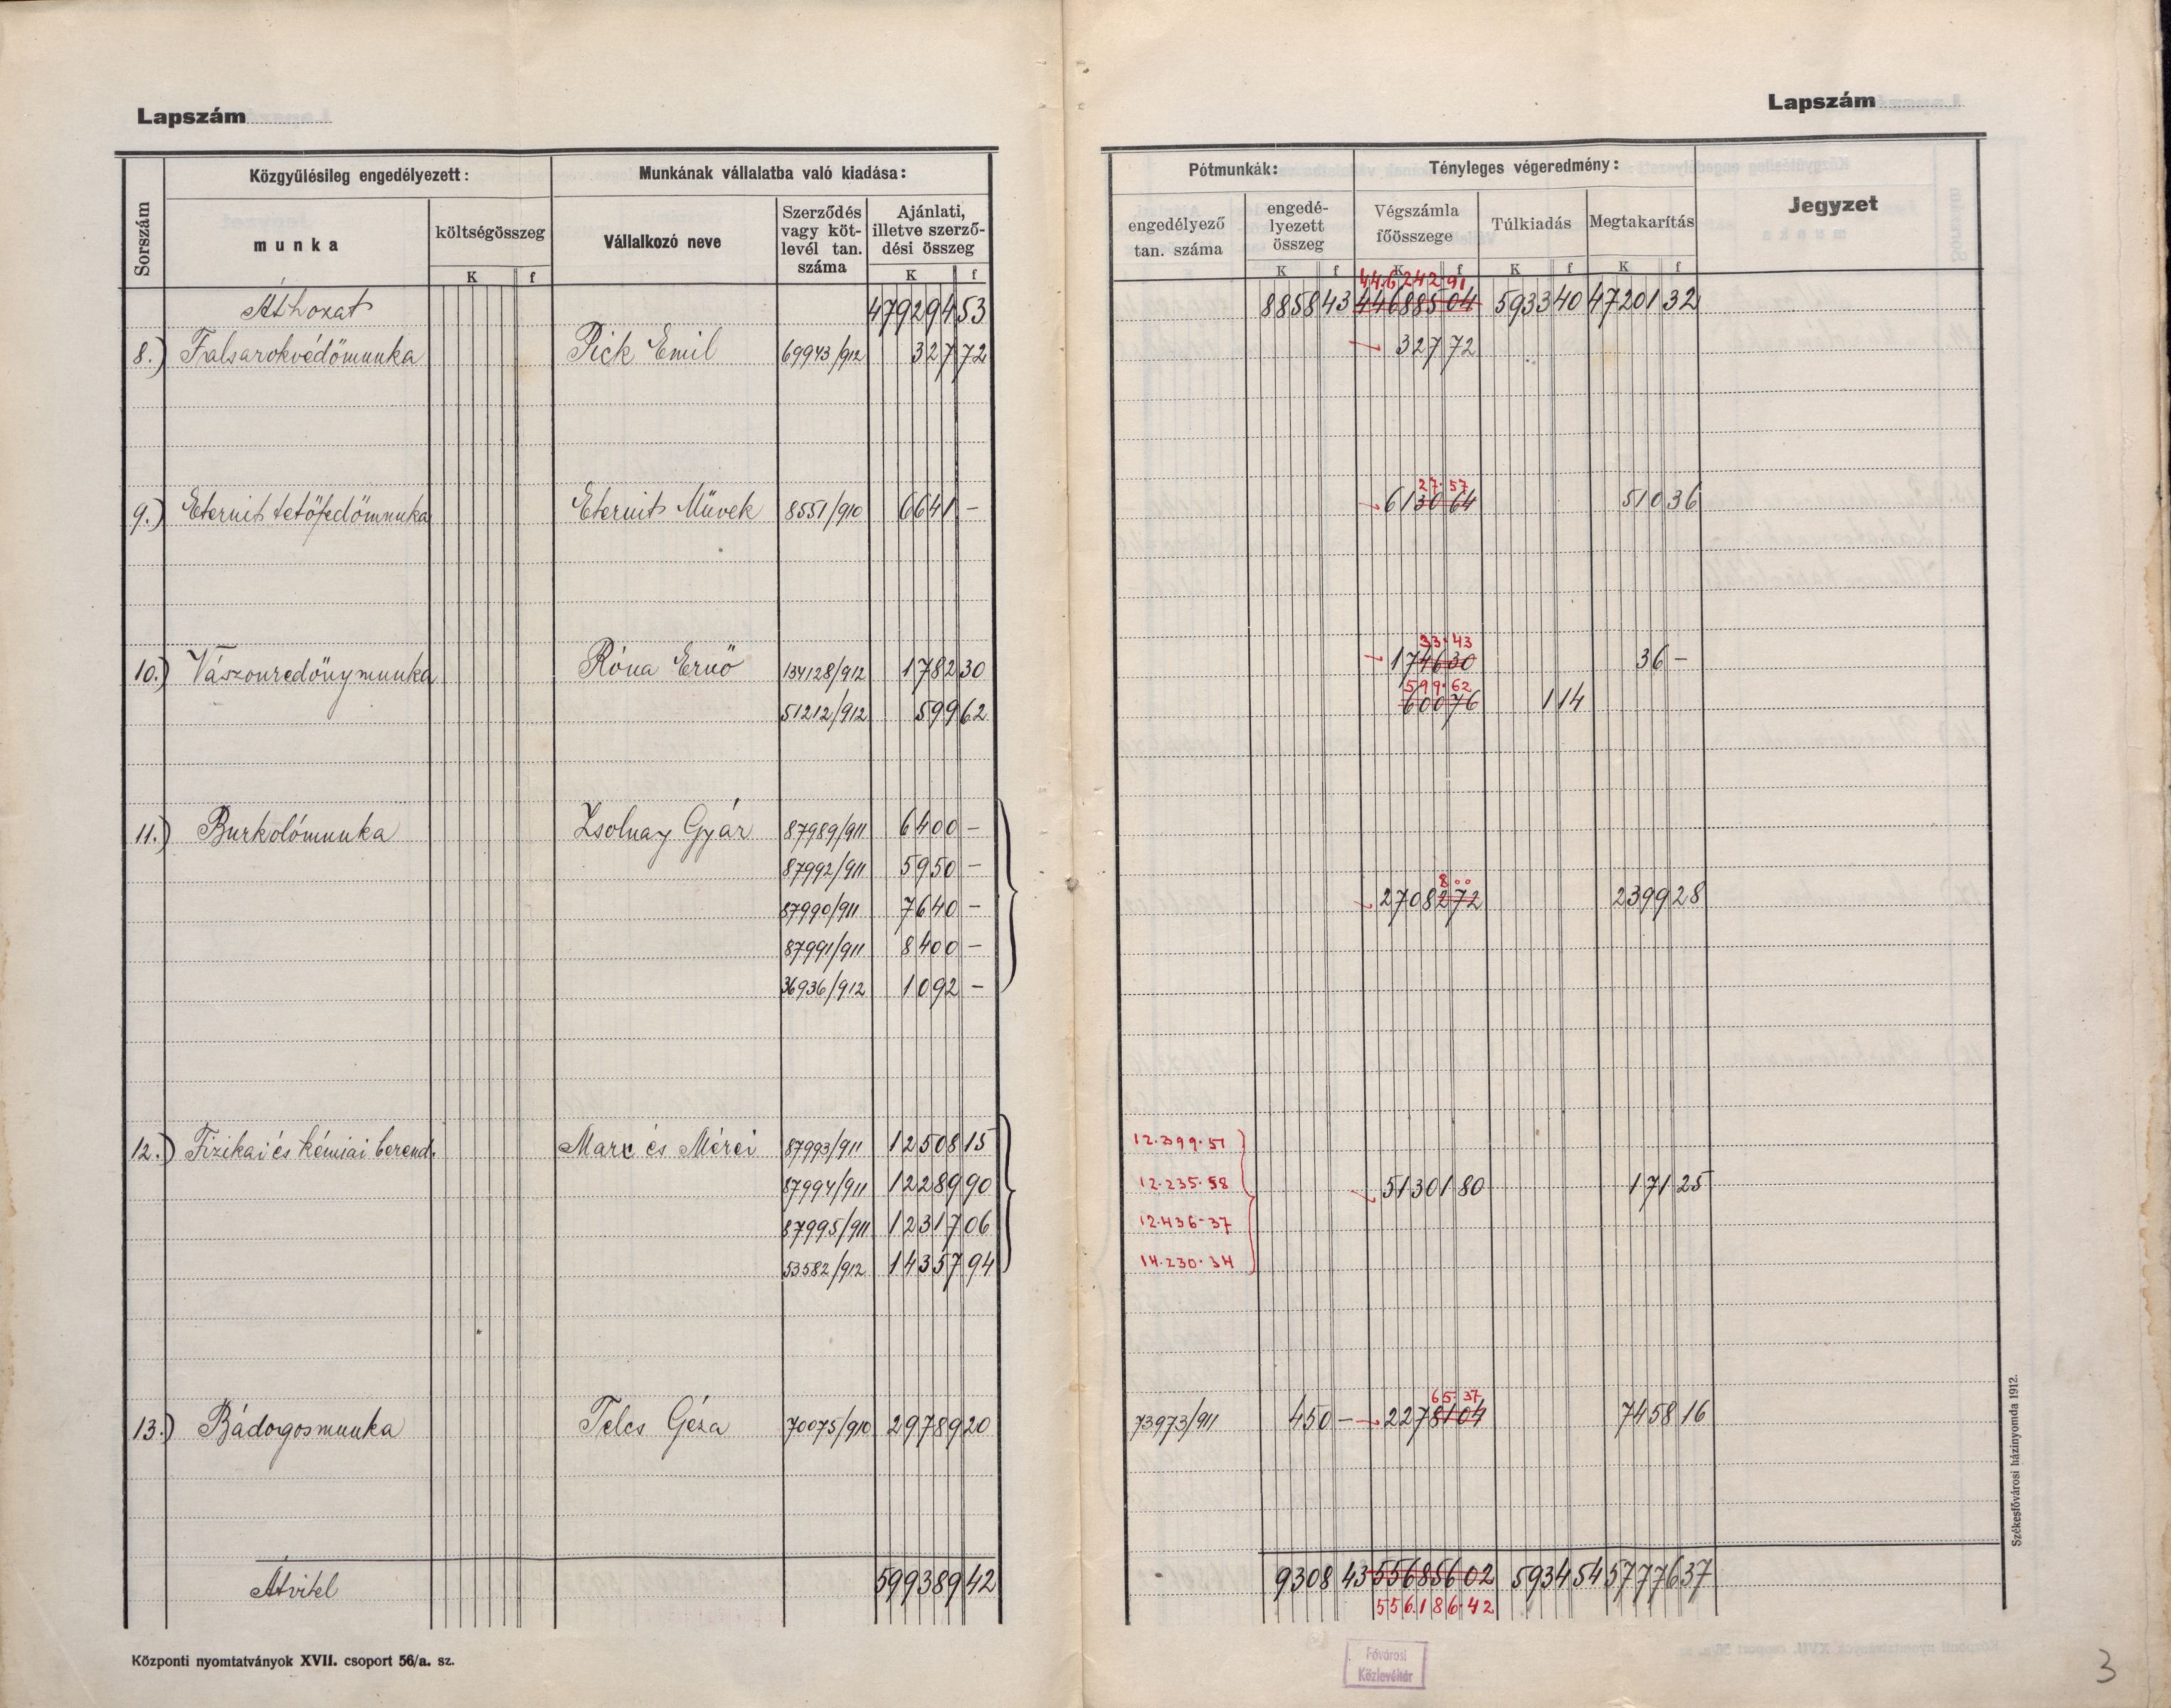 Lapszám
Közgyűlésileg engedélyezett: Munkának vállalatba való kiadása:
Sorszám munka költségösszeg Vállalkozó neve Szerződés vagy köt-levél tan. száma Ajánlati, illetve szerző-dési összeg
K f K f
Áthozat 479294 53
8.) Falsarokvédőmunka Pick Emil 69943/912 327 72
9.) Eternit tetőfedőmunka Eternit Művek 8551/910 6641 –
10.) Vászonredőnymunka Róna Ernő 134128/912 1782 30
51212/912 599 62
11.) Burkolómunka Zsolnay Gyár 87989/911 6400 –
87992/911 5950 –
87990/911 7640 –
87991/911 8400 –
36936/912 1092 –
12.) Fizikai és kémiai berend. Marx és Mérei 87993/911 12508 15
87994/911 12289 90
87995/911 12317 06
53582/912 14357 94
13.) Bádogosmunka Telcs Géza 70075/910 29789 20
Átvitel 599389 42
Központi nyomtatványok XVII. csoport 56/a. sz.
Lapszám
Pótmunkák: Tényleges végeredmény: Jegyzet
engedélyező tan. száma engedé-lyezett összeg Végszámla főösszege Túlkiadás Megtakarítás
K f K f K f K f
446242·91
8858 43 446885 04 5933 40 47201 32
327 72
27·57
6130 64 510 36
33·43
1746 30 36 –
599·62
600 76 1 14
8 00
27082 72 2399 28
12·399·51
12·235·58 51301 80 171 25
12·436·37
14·230·34
65·37
73973/911 450 – 22781 04 7458 16
9308 43 556856 02 5934 54 57776 37
556186·42
Székesfővárosi házinyomda 1912.
Fővárosi
Közlevéltár
3